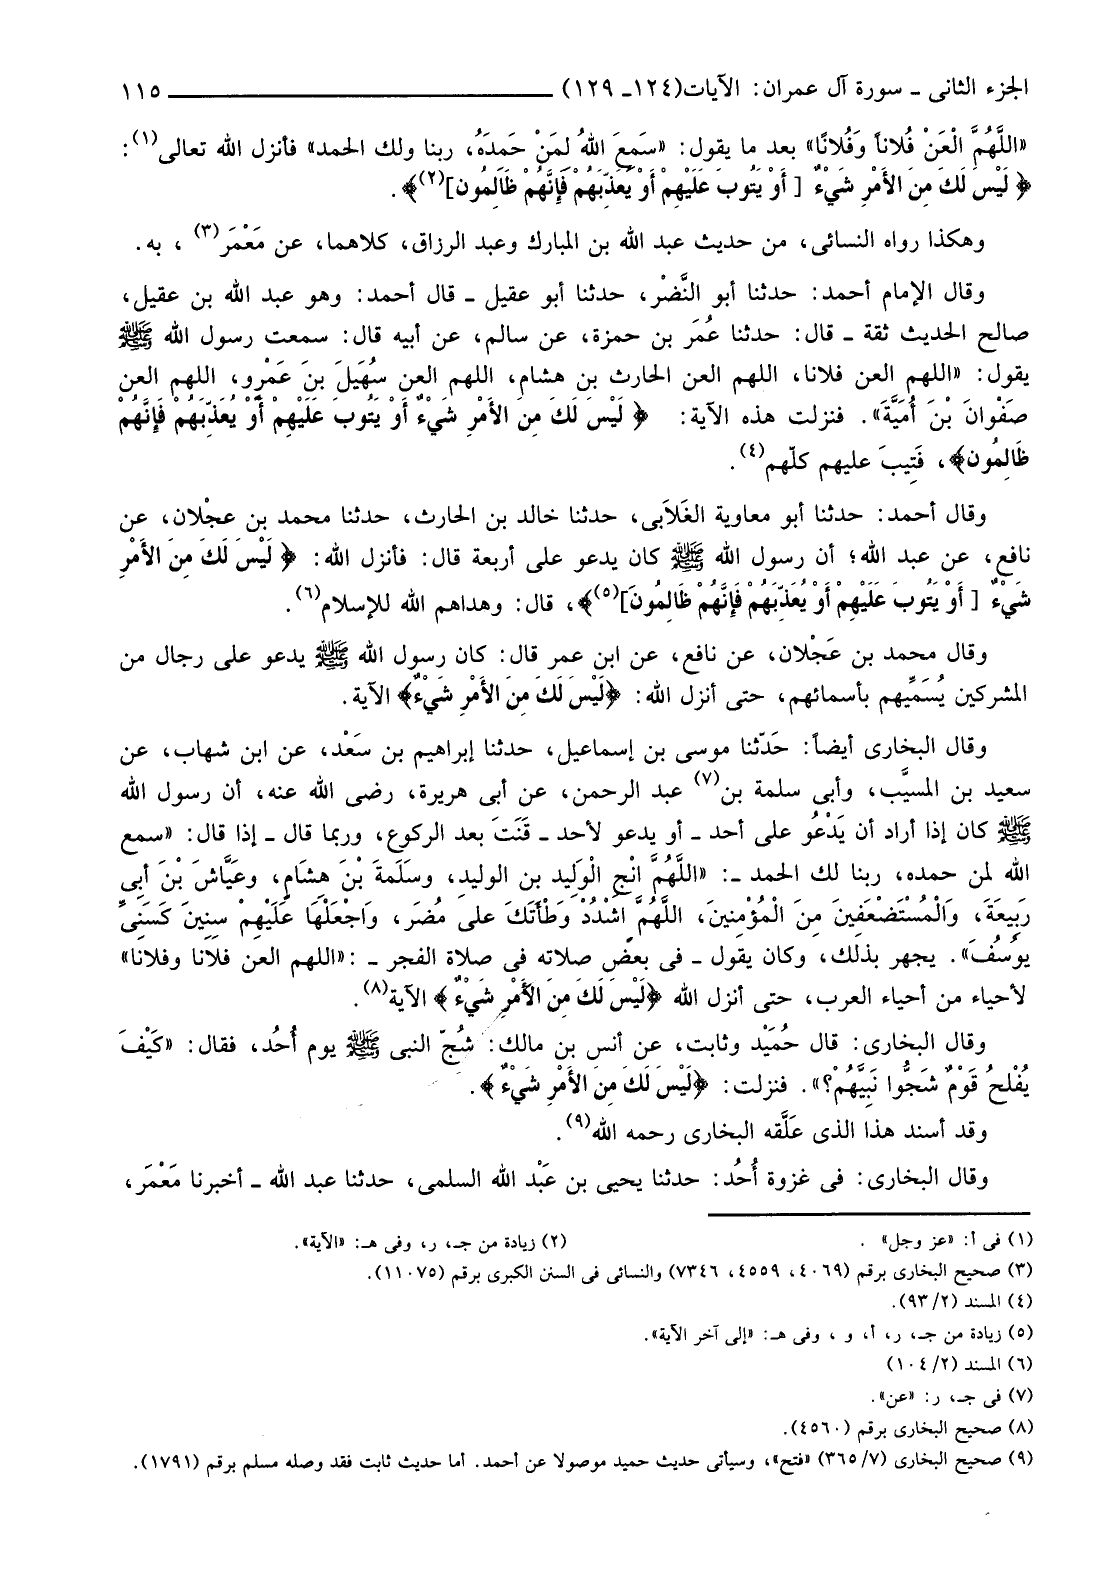 الجزء الثانى ـ سورة آل عمران: الآيات(١٢٤ـ ١٢٩) ١١٥
«اللَّهُمَّ الْعَنْ فُلاناً وَفُلانًا» بعد ما يقول: «سَمِعَ اللهُ لِمَنْ حَمِدَهُ، ربنا ولك الحمد» فأنزل الله تعالى(١):
﴿ لَيْسَ لَكَ مِنَ الأَمْرِ شَيْءٌ [ أَوْ يَتُوبَ عَلَيْهِمْ أَوْ يُعَذِّبَهُمْ فَإِنَّهُمْ ظَالِمُون](٢)﴾.
وهكذا رواه النسائى، من حديث عبد الله بن المبارك وعبد الرزاق، كلاهما، عن مَعْمَر(٣) ، به.
وقال الإمام أحمد: حدثنا أبو النَّضْر، حدثنا أبو عقيل ـ قال أحمد: وهو عبد الله بن عقيل،
صالح الحديث ثقة ـ قال: حدثنا عُمَر بن حمزة، عن سالم، عن أبيه قال: سمعت رسول الله ﷺ
يقول: «اللهم العن فلانا، اللهم العن الحارث بن هشام، اللهم العن سُهَيلَ بنَ عَمْرِو، اللهم العن
صَفْوانَ بْنَ أُمَيَّةَ». فنزلت هذه الآية: ﴿ لَيْسَ لَكَ مِنَ الأَمْرِ شَيْءٌ أَوْ يَتُوبَ عَلَيْهِمْ أَوْ يُعَذِّبَهُمْ فَإِنَّهُمْ
ظَالِمُون﴾، فَتِيبَ عليهم كلّهم(٤).
وقال أحمد: حدثنا أبو معاوية الغَلاَبى، حدثنا خالد بن الحارث، حدثنا محمد بن عجْلان، عن
نافع، عن عبد الله؛ أن رسول الله ﷺ كان يدعو على أربعة قال: فأنزل الله: ﴿ لَيْسَ لَكَ مِنَ الأَمْرِ
شَيْءٌ [ أَوْ يَتُوبَ عَلَيْهِمْ أَوْ يُعَذِّبَهُمْ فَإِنَّهُمْ ظَالِمُونَ](٥)﴾، قال: وهداهم الله للإسلام(٦).
وقال محمد بن عَجْلان، عن نافع، عن ابن عمر قال: كان رسول الله ﷺ يدعو على رجال من
المشركين يُسَمِّيهم بأسمائهم، حتى أنزل الله: ﴿لَيْسَ لَكَ مِنَ الأَمْرِ شَيْءٌ﴾ الآية.
وقال البخارى أيضاً: حَدّثنا موسى بن إسماعيل، حدثنا إبراهيم بن سَعْد، عن ابن شهاب، عن
سعيد بن المسيَّب، وأبى سلمة بن(٧) عبد الرحمن، عن أبى هريرة، رضى الله عنه، أن رسول الله
ﷺ كان إذا أراد أن يَدْعُوَ على أحد ـ أو يدعو لأحد ـ قَنَتَ بعد الركوع، وربما قال ـ إذا قال: «سمع
الله لمن حمده، ربنا لك الحمد ـ: «اللَّهُمَّ انْجِ الْوَلِيد بن الوليد، وسَلَمةَ بْنَ هشَامٍ، وعَيَّاشَ بْنَ أبِي
رَبِيعَةَ، وَالْمُسْتَضْعَفِينَ مِنَ الْمُؤْمِنِينَ، اللَّهُمَّ اشْدُدْ وَطْأَتَكَ على مُضَر، وَاجْعَلْهَا عَلَيْهِمْ سِنِينَ كَسَنِىِّ
يُوسُفَ». يجهر بذلك، وكان يقول ـ فى بعض صلاته فى صلاة الفجر ـ :«اللهم العن فلانا وفلانا»
لأحياء من أحياء العرب، حتى أنزل الله ﴿لَيْسَ لَكَ مِنَ الأَمْرِ شَيْءٌ ﴾ الآية(٨).
وقال البخارى: قال حُمَيْد وثابت، عن أنس بن مالك: شُجّ النبى ﷺ يوم أُحُد، فقال: «كَيْفَ
يُفْلحُ قَوْمٌ شَجُّوا نَبِيَّهُمْ؟». فنزلت: ﴿لَيْسَ لَكَ مِنَ الأَمْرِ شَيْءٌ ﴾.
وقد أسند هذا الذى عَلَّقه البخارى رحمه الله(٩).
وقال البخارى: فى غزوة أُحُد: حدثنا يحيى بن عَبْد الله السلمى، حدثنا عبد الله ـ أخبرنا مَعْمَر،
(١) فى أ: «عز وجل» . (٢) زيادة من جـ، ر، وفى هـ: «الآية».
(٣) صحيح البخارى برقم (٤٠٦٩، ٤٥٥٩، ٧٣٤٦) والنسائى فى السنن الكبرى برقم (١١٠٧٥).
(٤) المسند (٢/ ٩٣).
(٥) زيادة من جـ، ر، أ، و ، وفى هـ: «إلى آخر الآية».
(٦) المسند (٢/ ١٠٤)
(٧) فى جـ، ر: «عن».
(٨) صحيح البخارى برقم (٤٥٦٠).
(٩) صحيح البخارى (٧/ ٣٦٥) «فتح»، وسيأتى حديث حميد موصولا عن أحمد. أما حديث ثابت فقد وصله مسلم برقم (١٧٩١).